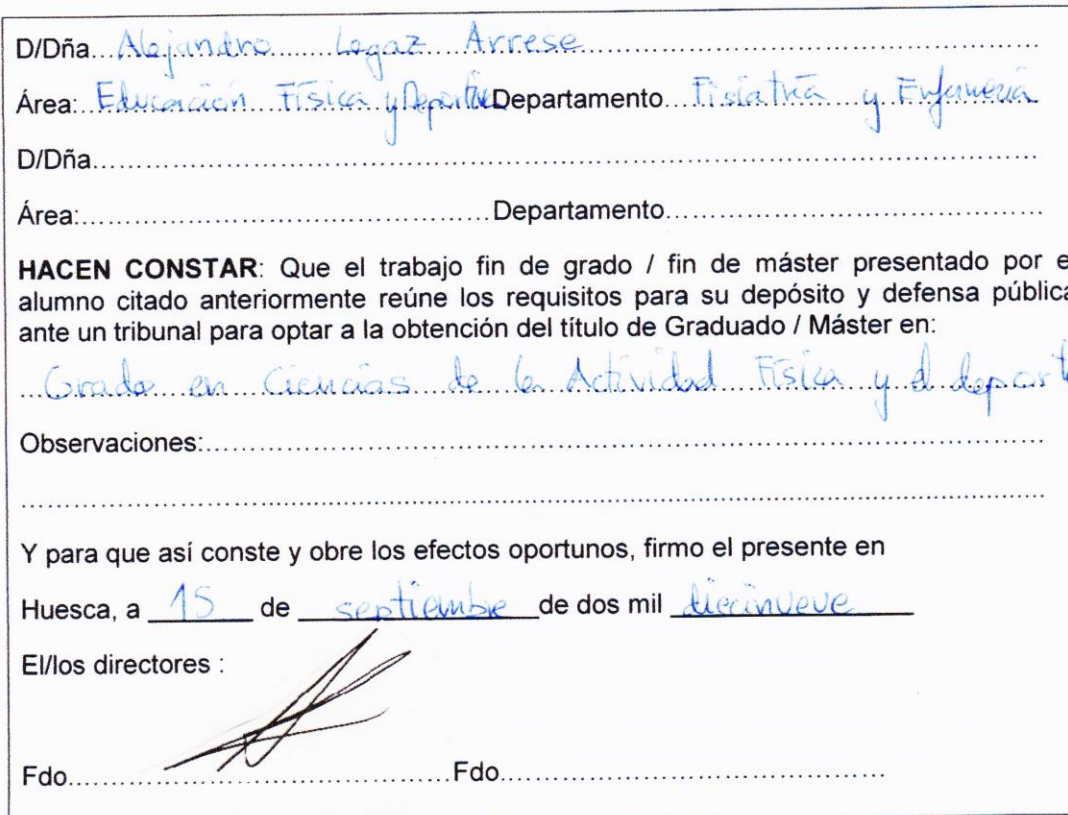 D/Dña...Alejandro......Legaz...Arrese..............................
Área:..Educación..Física y Deportiva Departamento...Fisiatría...y...Enfermería
D/Dña..............................
Área:..............................Departamento..............................
HACEN CONSTAR: Que el trabajo fin de grado / fin de máster presentado por e
alumno citado anteriormente reúne los requisitos para su depósito y defensa pública
ante un tribunal para optar a la obtención del título de Graduado / Máster en:
...Grado en Ciencias de la Actividad Física y el deporte
Observaciones:..............................
..............................
Y para que así conste y obre los efectos oportunos, firmo el presente en
Huesca, a 15 de septiembre de dos mil diecinueve
El/los directores :
Fdo..............................Fdo..............................